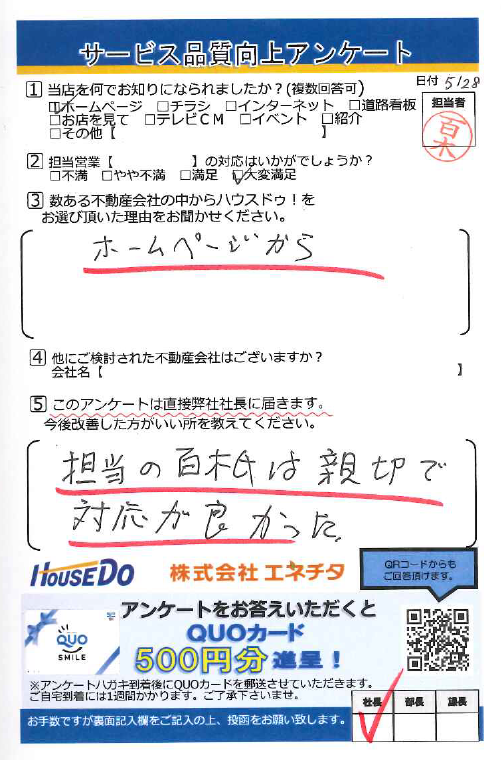 サービス品質向上アンケート
1 当店を何でお知りになられましたか？(複数回答可)
日付 5/28
□ホームページ □チラシ □インターネット □道路看板
□お店を見て □テレビＣＭ □イベント □紹介
□その他【 】
担当者
百木
2 担当営業【 】の対応はいかがでしょうか？
□不満 □やや不満 □満足 □大変満足
3 数ある不動産会社の中からハウスドゥ！を
お選び頂いた理由をお聞かせください。
ホームページから
4 他にご検討された不動産会社はございますか？
会社名【 】
5 このアンケートは直接弊社社長に届きます。
今後改善した方がいい所を教えてください。
担当の百木氏は親切で
対応が良かった。
HOUSEDO 株式会社 エネチタ
QRコードからも
ご回答頂けます。
アンケートをお答えいただくと
QUOカード
500円分 進呈！
QUO
SMILE
※アンケートハガキ到着後にQUOカードを郵送させていただきます。
ご自宅到着には1週間かかります。ご了承下さいませ。
お手数ですが裏面記入欄をご記入の上、投函をお願い致します。
社長 部長 課長